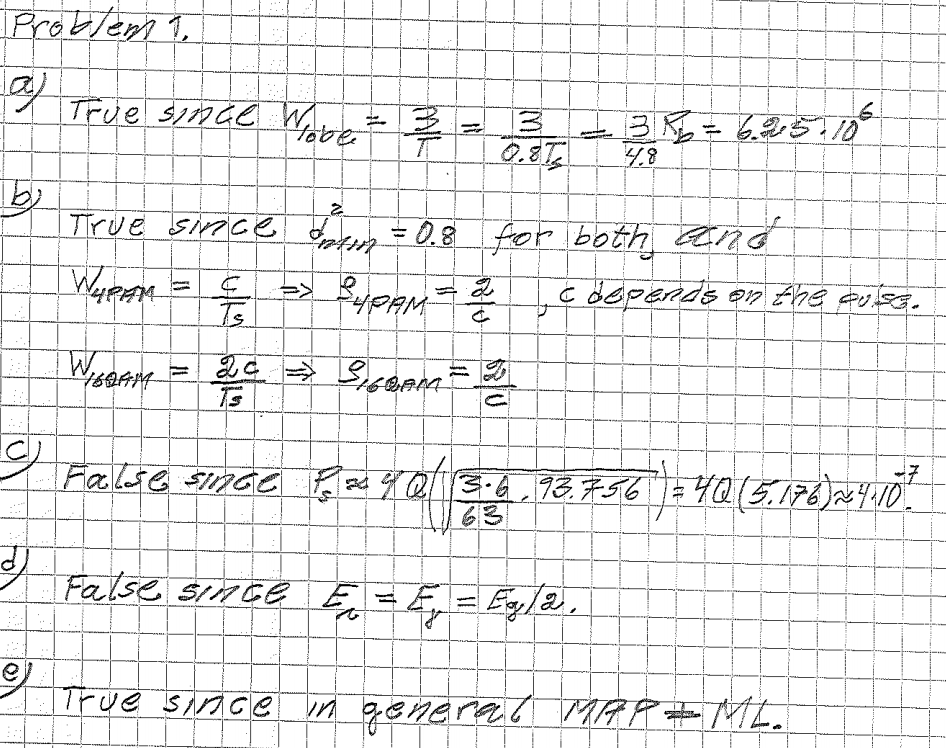 Problem 1.
a) True since W_lobe = 3/T = 3/(0.8Ts) = 3/4.8 R_b = 6.25·10^6
b) True since d²_min = 0.8 for both, and
W_4PAM = c/Ts ⇒ ρ_4PAM = 2/c , c depends on the pulse.
W_16QAM = 2c/Ts ⇒ ρ_16QAM = 2/c
c) False since P_s ≈ 4Q(√(3·6/63 · 93.756)) = 4Q(5.176) ≈ 4·10^-7.
d) False since E_r = E_y = E_g/2.
e) True since in general MAP ≠ ML.